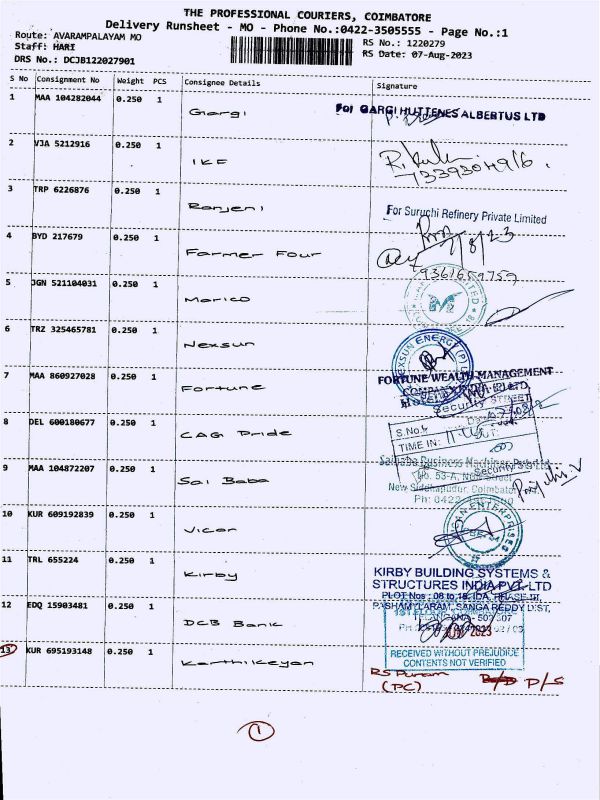 THE PROFESSIONAL COURIERS, COIMBATORE
Delivery Runsheet - MO - Phone No.:0422-3505555 - Page No.:1
Route: AVARAMPALAYAM MO
Staff: HARI
DRS No.: DCJB122027901
RS No.: 1220279
RS Date: 07-Aug-2023
S No Consignment No Weight PCS Consignee Details Signature
1 MAA 104282044 0.250 1 Gargi For GARGI HUTTENES ALBERTUS LTD
2 VJA 5212916 0.250 1 IKF
3 TRP 6226876 0.250 1 Ranjeni For Suruchi Refinery Private Limited
4 BYD 217679 0.250 1 Farmer Four 7/8/23
9361659759
5 JGN 521104031 0.250 1 Marico
6 TRZ 325465781 0.250 1 Nexsun NEXSUN ENERGY (P) LTD
7 MAA 860927028 0.250 1 Fortune FORTUNE WEALTH MANAGEMENT
COMPANY INDIA (P) LTD,
Security
8 DEL 600180677 0.250 1 CAG Pride S.No.
TIME IN:
Security
9 MAA 104872207 0.250 1 Sai Baba Saibaba Business Machines Pvt Ltd
No. 53-A, New Street
New Siddhapudur, Coimbatore
Ph: 0422
10 KUR 609192839 0.250 1 Vican VICAN ENTERPRISES
11 TRL 655224 0.250 1 Kirby KIRBY BUILDING SYSTEMS &
STRUCTURES INDIA PVT. LTD
PLOT Nos : 08 to 18, IDA, PHASE-III,
PASHAMYLARAM, SANGA REDDY DIST,
TELANGANA - 502 307
12 EDQ 15903481 0.250 1 DCB Bank 2023
RECEIVED WITHOUT PREJUDICE
CONTENTS NOT VERIFIED
13 KUR 695193148 0.250 1 Karthikeyan RS Puram
(PC) P/S
1